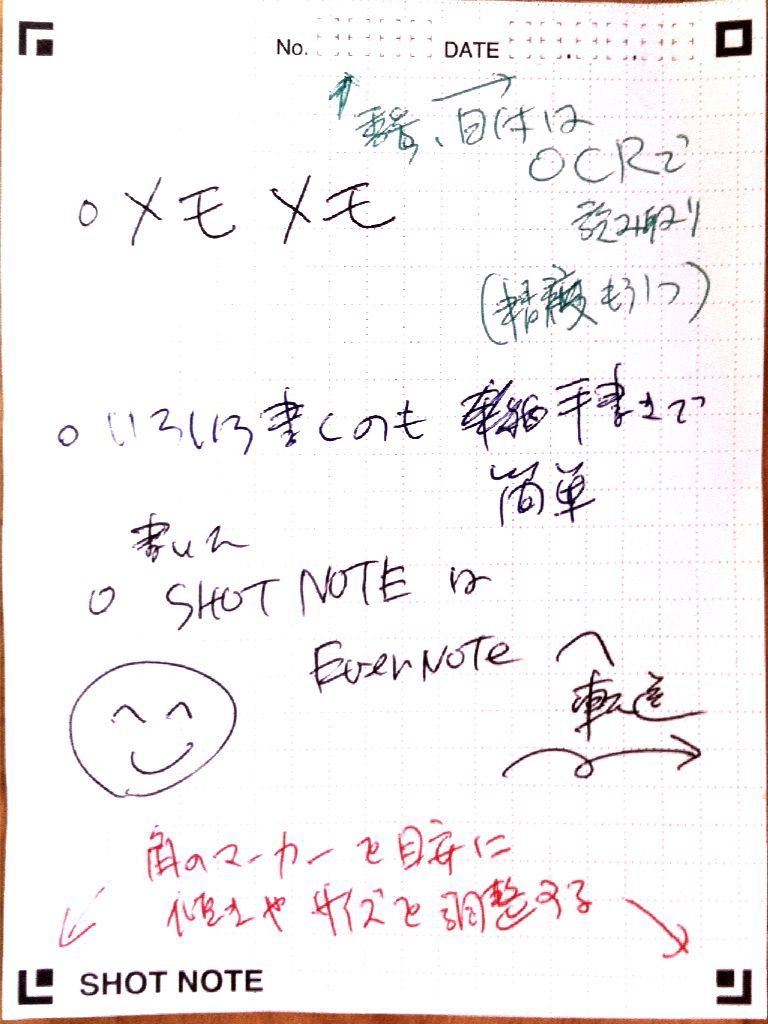 No. DATE
番号、日付は
OCRで
読み取り
(精度もう1つ)
○メモメモ
○いろいろ書くのも 手書きで
簡単
書いた
○ SHOT NOTE は
EverNote へ
転送
角のマーカーを目安に
傾きやサイズを調整する
SHOT NOTE